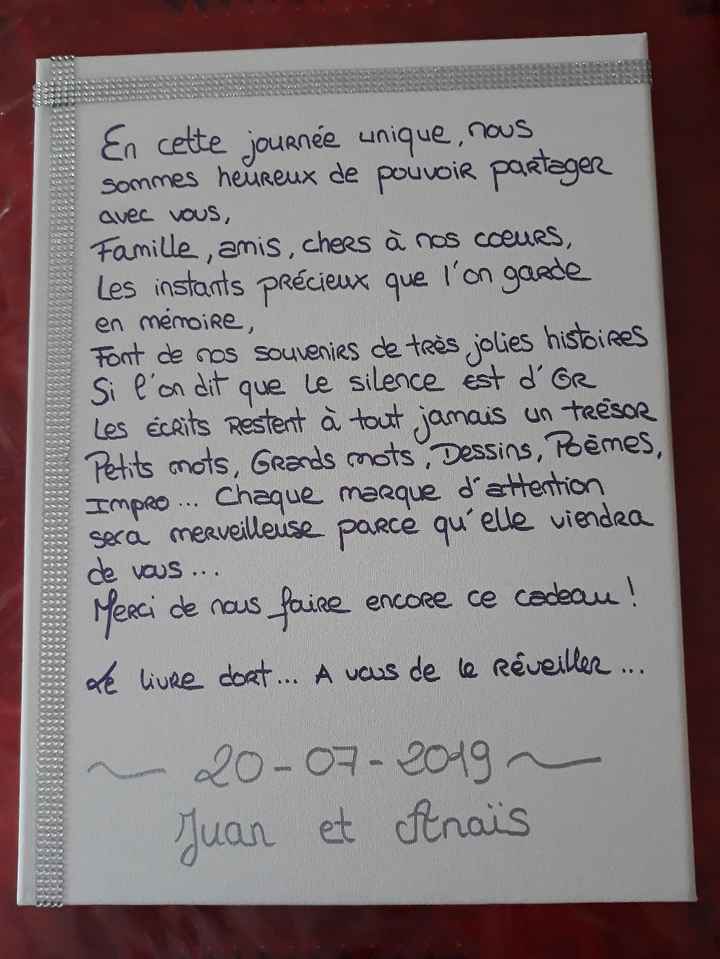 En cette journée unique, nous
sommes heureux de pouvoir partager
avec vous,
Famille, amis, chers à nos coeurs,
Les instants précieux que l'on garde
en mémoire,
Font de nos souvenirs de très jolies histoires
Si l'on dit que le silence est d'Or
Les écrits restent à tout jamais un trésor
Petits mots, Grands mots, Dessins, Poèmes,
Impro... Chaque marque d'attention
sera merveilleuse parce qu'elle viendra
de vous...
Merci de nous faire encore ce cadeau !
Le livre dort... A vous de le réveiller...
~ 20-07-2019 ~
Juan et Anaïs